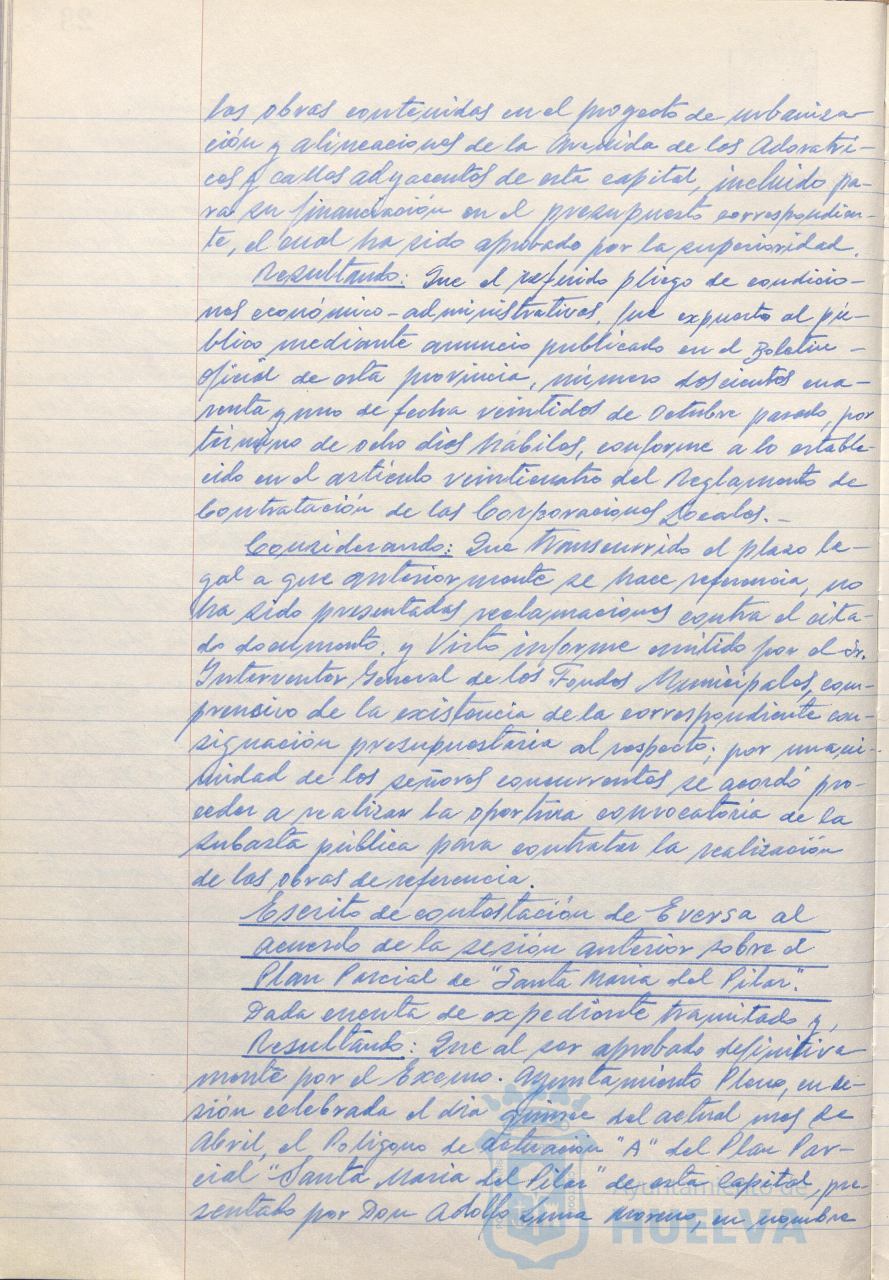 las obras contenidas en el proyecto de urbaniza-
ción y alineaciones de la Avenida de las Adoratri-
ces y calles adyacentes de esta capital, incluido pa-
ra su financiación en el presupuesto correspondien-
te, el cual ha sido aprobado por la superioridad.
Resultando: Que el referido pliego de condicio-
nes económico-administrativas, fue expuesto al pú-
blico mediante anuncio publicado en el Boletín -
Oficial de esta provincia, número doscientos cua-
renta y uno de fecha veintidos de Octubre pasado, por
término de ocho dias hábiles, conforme a lo estable-
cido en el artículo veinticuatro del Reglamento de
Contratación de las Corporaciones Locales.-
Considerando: Que transcurrido el plazo le-
gal a que anteriormente se hace referencia, no
ha sido presentadas reclamaciones contra el cita-
do documento, y Visto informe emitido por el Sr.
Interventor General de los Fondos Municipales, com-
prensivo de la existencia de la correspondiente con-
signación presupuestaria al respecto; por unani-
midad de los señores concurrentes se acordó pro-
ceder a realizar la oportuna convocatoria de la
subasta pública para contratar la realización
de las obras de referencia.
Escrito de contestación de Eversa al
acuerdo de la sesión anterior sobre el
Plan Parcial de "Santa Maria del Pilar".
Dada cuenta de expediente tramitado y,
Resultando: Que al ser aprobado definitiva
mente por el Excmo. Ayuntamiento Pleno, en se-
sión celebrada el dia quince del actual mes de
Abril, el Poligono de actuación "A" del Plan Par-
cial "Santa Maria del Pilar" de esta Capital, pre
sentado por Don Adolfo Moreno, en nombre
Ayuntamiento de
HUELVA